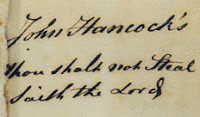 John Hancock's
thou shalt not Steal
Saith the Lord